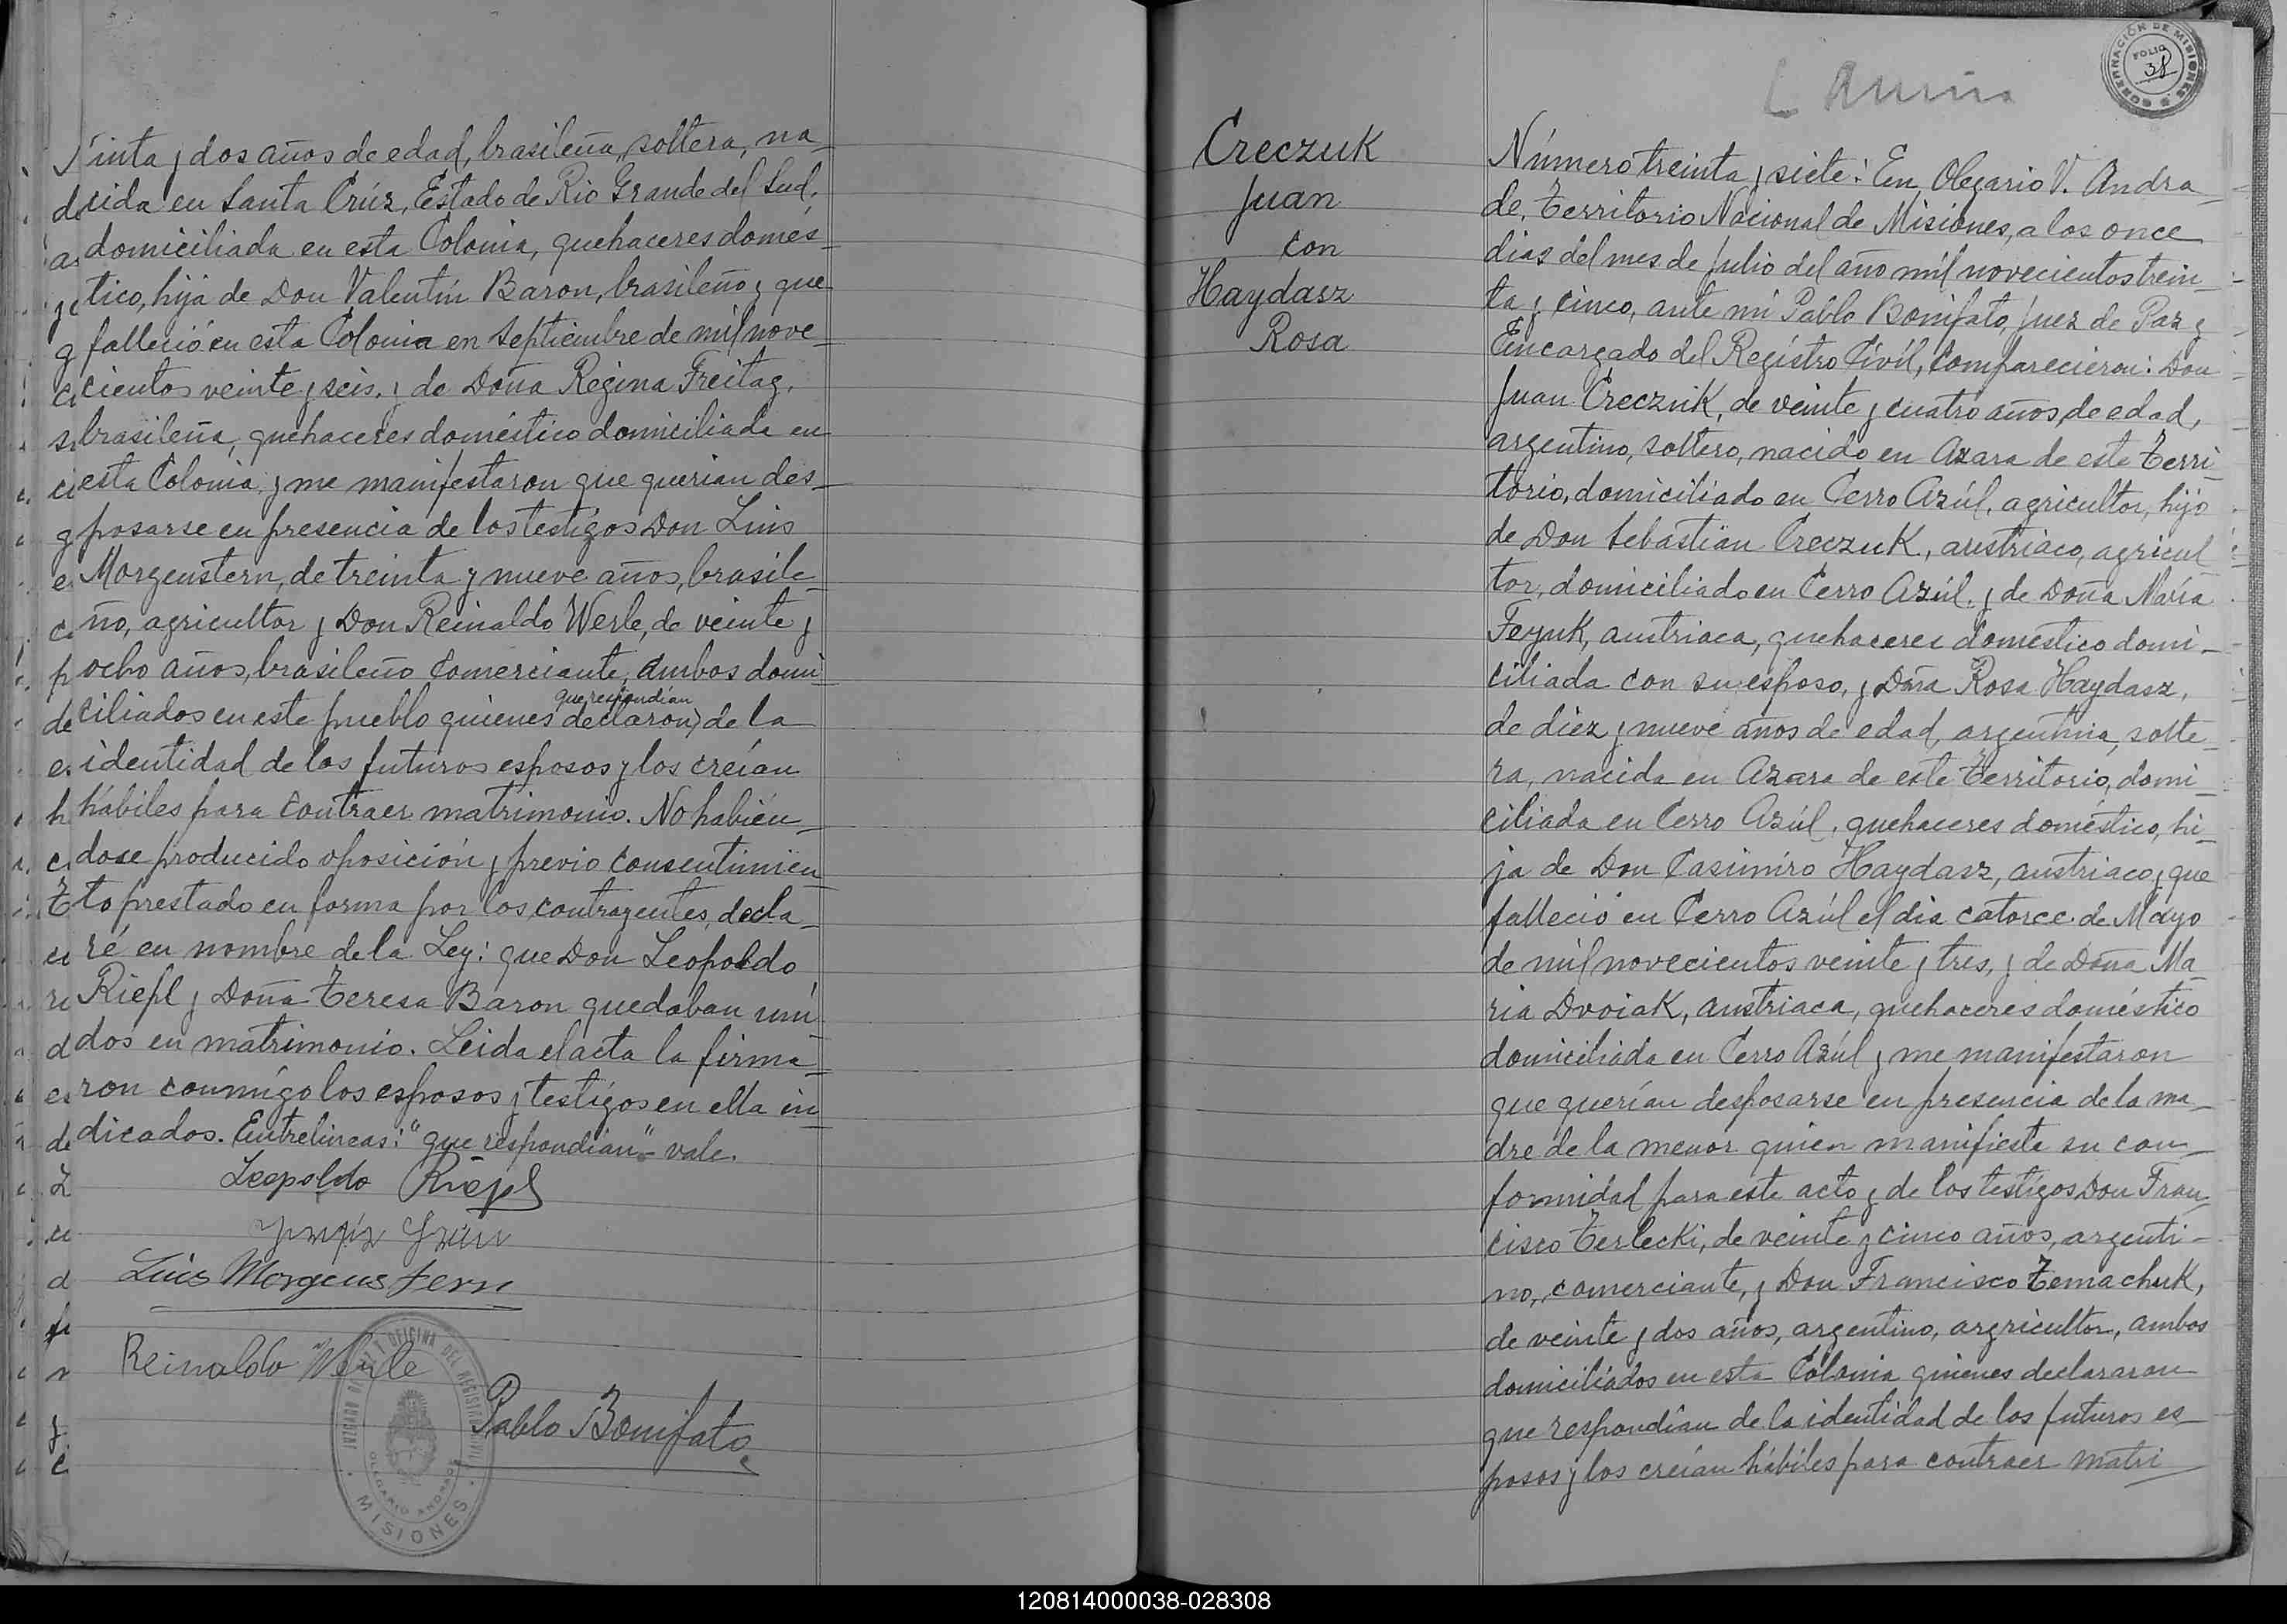 inta y dos años de edad, brasileña, soltera, na_
cida en Santa Crúz, Estado de Rio Grande del Sud,
domiciliada en esta Colonia, quehaceres domés_
tico, hija de Don Valentín Baron, brasileño y que
falleció en esta Colonia en Septiembre de mil nove_
cientos veinte y seis, y de Doña Regina Freitag,
brasileña, quehaceres doméstico domiciliada en
esta Colonia, y me manifestaron que querian des_
posarse en presencia de los testígos Don Luis
Morgenstern, de treinta y nueve años, brasile_
ño, agricultor y Don Reinaldo Werle, de veinte y
ocho años, brasileño comerciante, ambos domi
que respondían
ciliados en este pueblo quienes declaron de la
identidad de los futuros esposos y los creían
hábiles para contraer matrimonio. No habién_
dose producido oposición y previo consentimien_
to prestado en forma por los contrayentes, decla_
ré en nombre de la Ley: que Don Leopoldo
Riepl y Doña Teresa Baron quedaban uni
dos en matrimonio. Leida el acta la firma_
ron conmígo los esposos y testígos en ella in
dicados. Entrelineas: "que respondían" vale.
Leopoldo Riepl
Luis Morgenstern
Reinaldo Werle
Pablo Bonifato
JUZGADO DE PAZ Y OFICINA DEL REGISTRO CIVIL
OLEGARIO ANDRADE
MISIONES
GOBERNACIÓN DE MISIONES
FOLIO
38
Creczuk
Juan
con
Haydasz
Rosa
Número treinta y siete: En Olegario V. Andra_
de, Territorio Nacional de Misiónes, a los once
dias del mes de Julio del año mil novecientos trein_
ta y cinco, ante mi Pablo Bonifato, Juez de Paz y
Encargado del Regístro Cívil, Comparecieron: Don
Juan Creczuk, de veinte y cuatro años, de edad,
argentino, soltero, nacido en Azara de este Terri_
torio, domiciliado en Cerro Azúl, agricultor, hijo
de Don Sebastían Creczuk, austriaco, agricul_
tor, domiciliado en Cerro Azúl, y de Doña María
Feyuk, austriaca, quehaceres doméstico domi_
ciliada con su esposo, y Doña Rosa Haydasz,
de diez y nueve años de edad, argentina, solte_
ra, nacida en Azara de este Territorio, domi_
ciliada en Cerro Azúl, quehaceres doméstico, hi_
ja de Don Casimíro Haydasz, austriaco y que
falleció en Cerro Azúl el dia catorce de Mayo
de mil novecientos veinte y tres, y de Doña Ma_
ria Dvoiak, austriaca, quehaceres doméstico
domiciliada en Cerro Azúl y me manifestaron
que querían desposarse en presencia de la ma_
dre de la menor quien manifiesta su con_
formidad para este acto y de los testígos Don Fran_
cisco Terlecki, de veinte y cinco años, argenti_
no, comerciante, y Don Francisco Temachuk,
de veinte y dos años, argentino, argricultor, ambos
domiciliados en esta Colonia quienes declararon
que respondían de la identidad de los futuros es_
posos y los creían hábiles para contraer matri
120814000038-028308